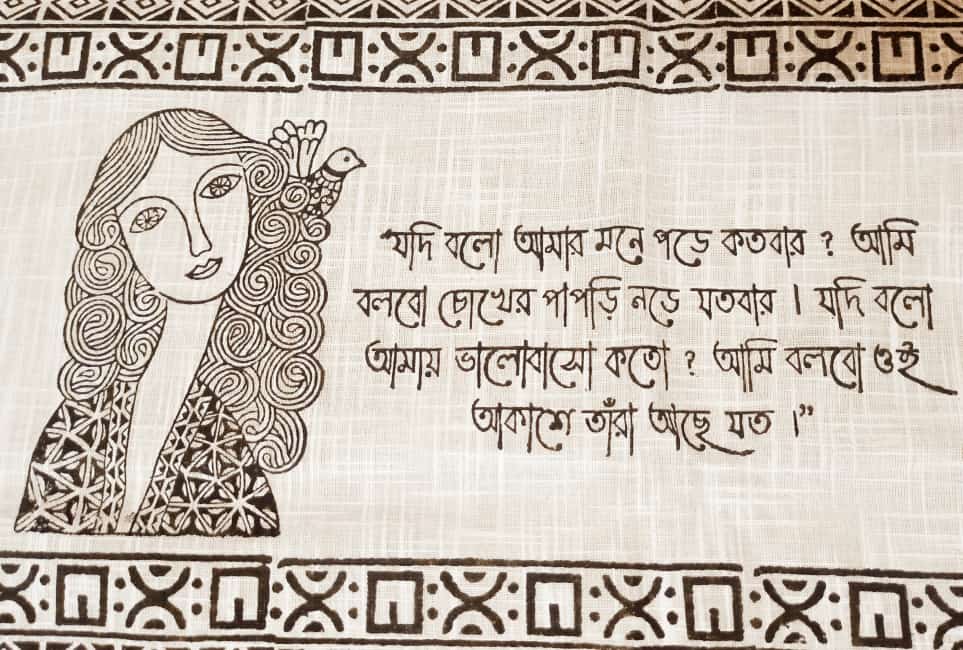 “যদি বলো আমার মনে পড়ে কতবার ? আমি
বলবো চোখের পাপড়ি নড়ে যতবার । যদি বলো
আমায় ভালোবাসো কতো ? আমি বলবো ওই
আকাশে তাঁরা আছে যত ।”